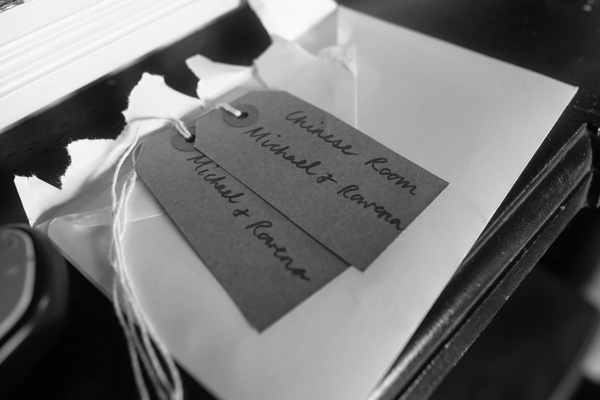 Chinese Room
Michael & Ravena
Michael & Ravena